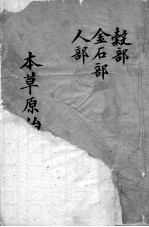 穀部
金石部
人部
本草原始